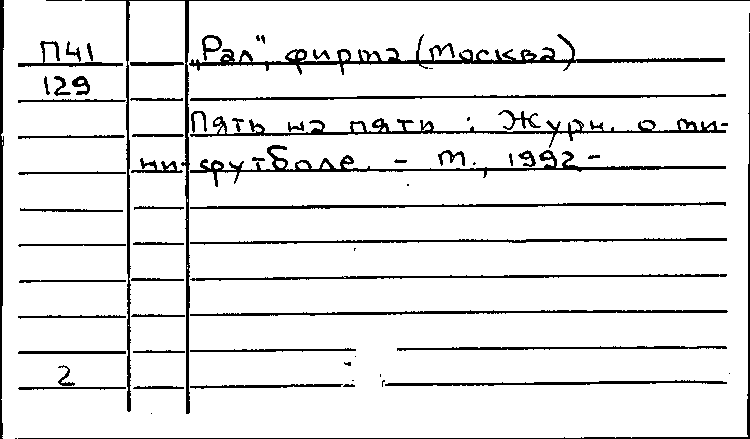 П41 „Рал", фирма (Москва)
129
Пять на пяти : Журн. о ми-
ни-футболе. - М., 1992-
2